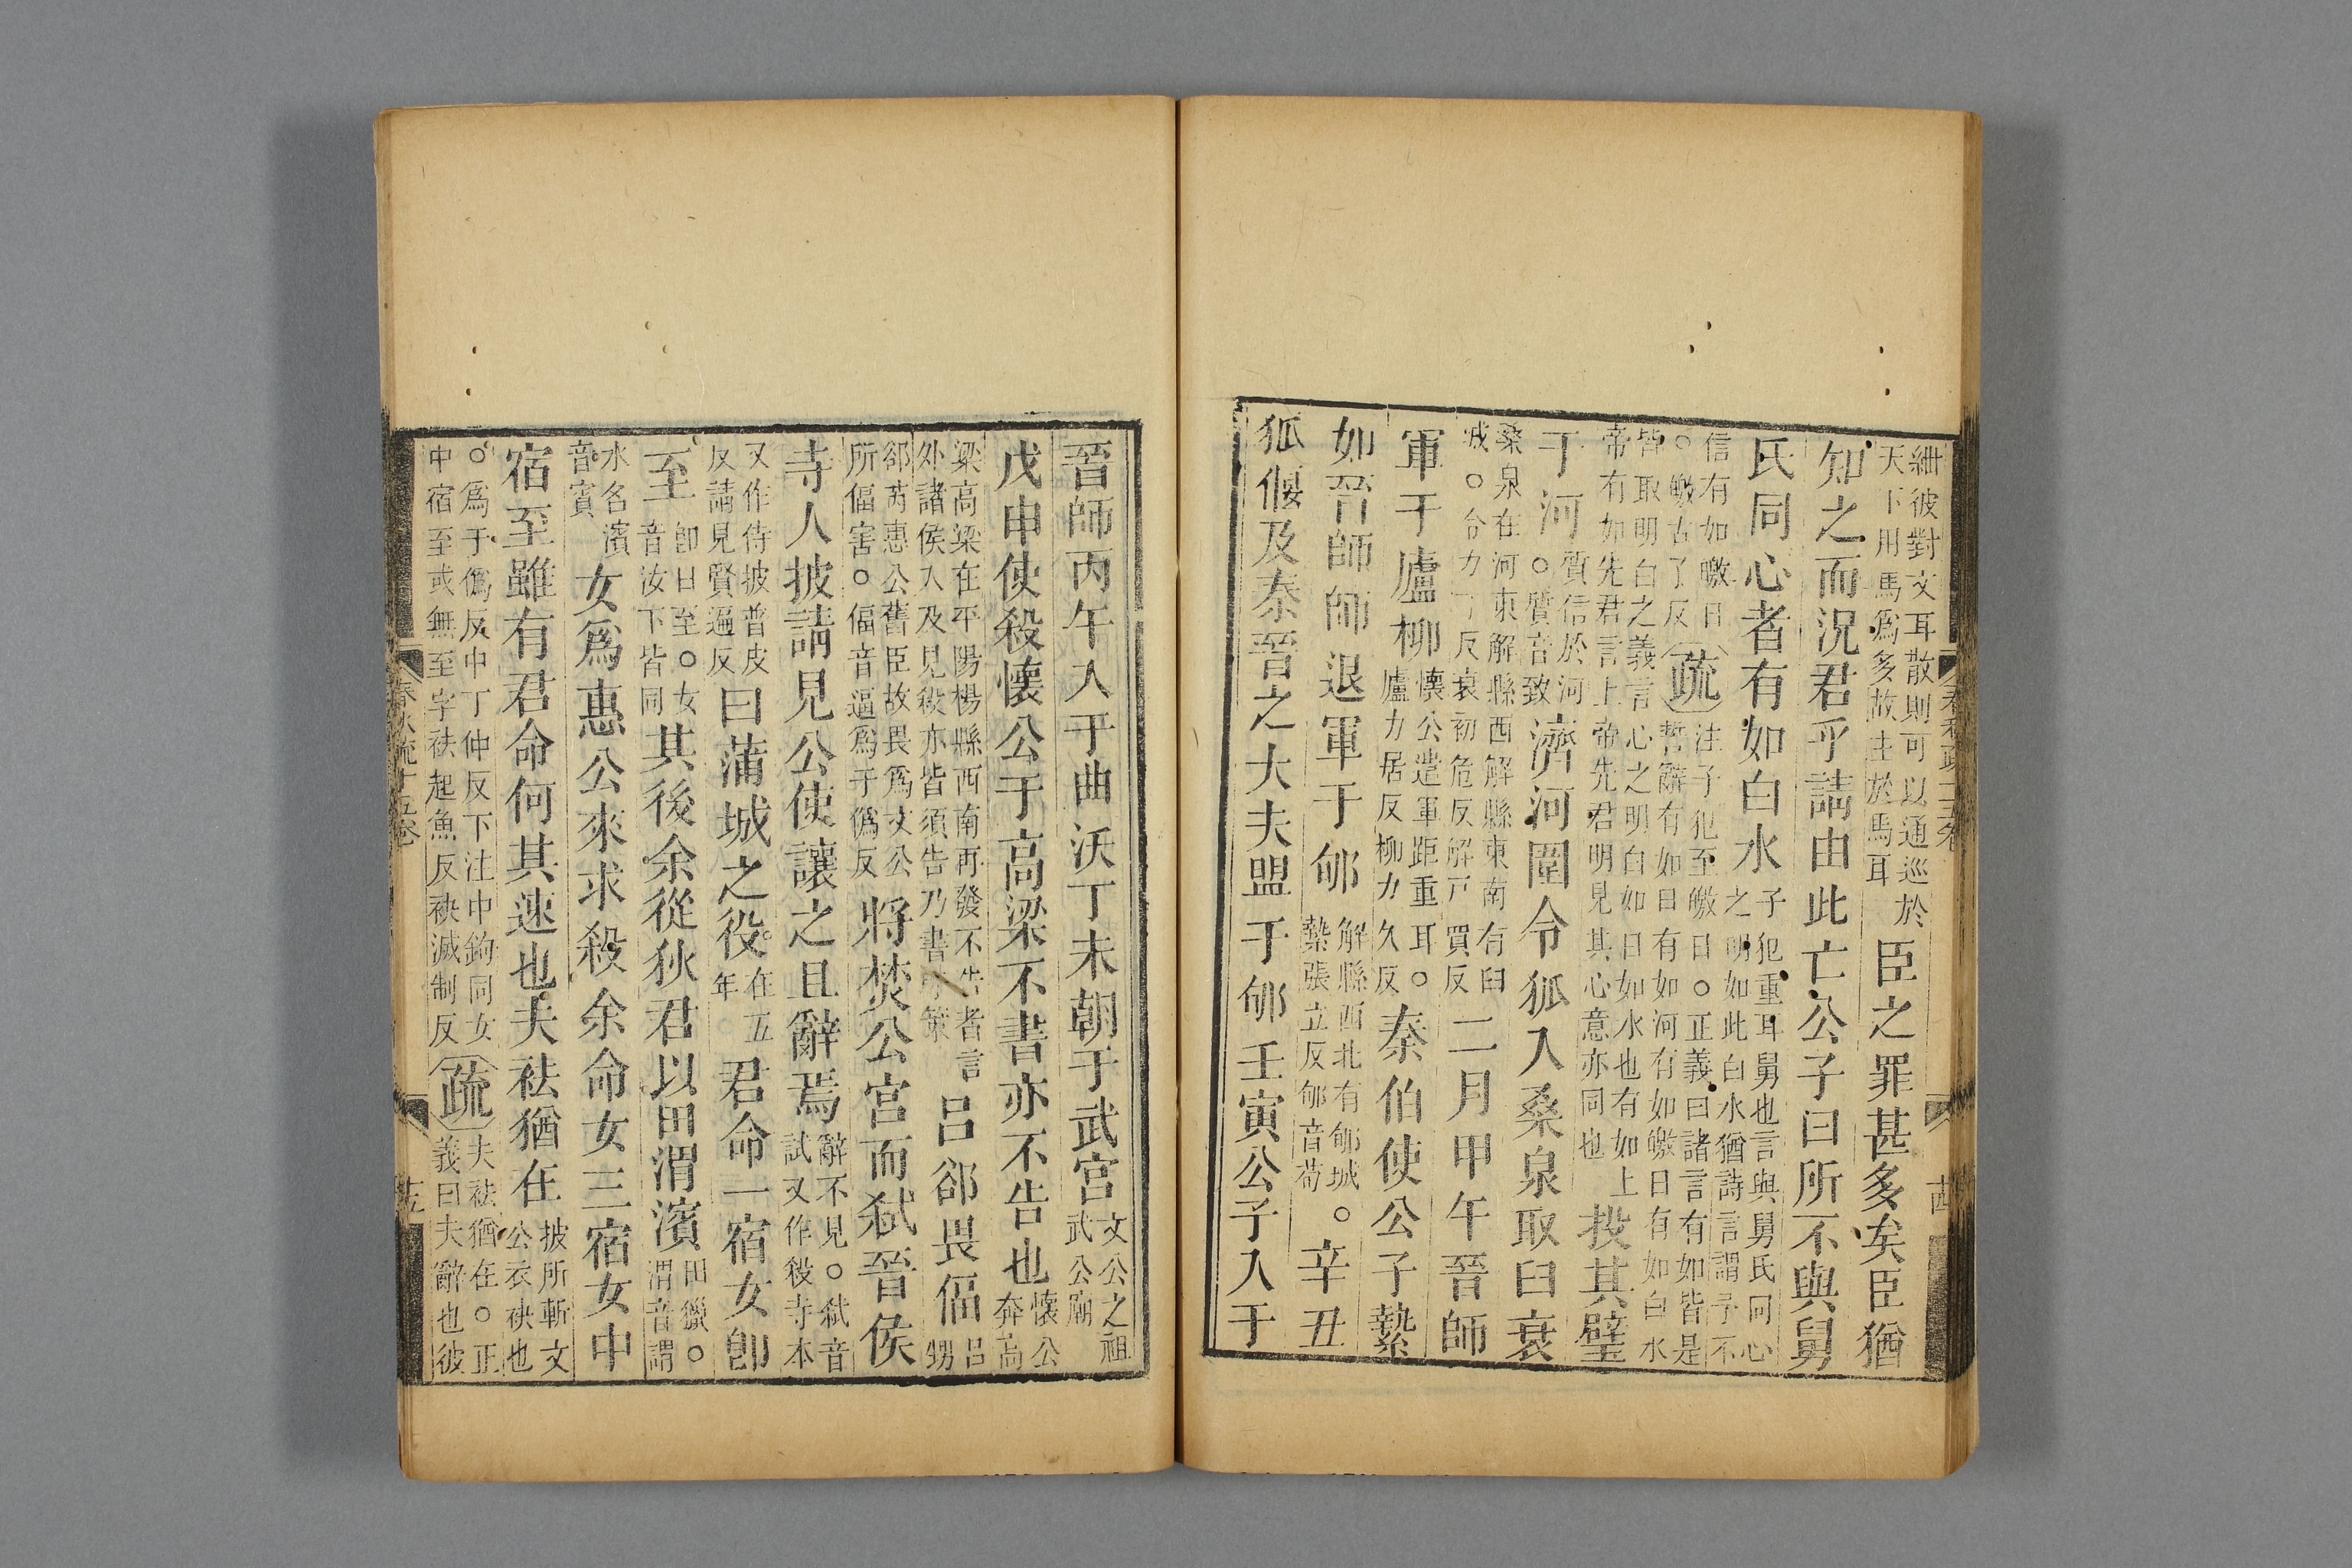 紲彼對文耳散則可以通巡於
天下用馬爲多故主於馬耳
臣之罪甚多矣臣猶
知之而況君乎請由此亡公子曰所不與舅
氏同心者有如白水
子犯重耳舅也言與舅氏同心
之明如此白水猶詩言謂予不
信有如皦日
○皦古了反
疏
注子犯至皦日○正義曰諸言有如皆是
誓辭有如日有如河有如皦日有如白水
皆取明白之義言心之明白如日如水也有如上
帝有如先君言上帝先君明見其心意亦同也
投其璧
于河
質信於河
○質音致
濟河圍令狐入桑泉取臼衰
桑泉在河東解縣西解縣東南有臼
城○令力丁反衰初危反解戸買反
二月甲午晉師
軍于廬柳
懷公遣軍距重耳○
廬力居反柳力久反
秦伯使公子縶
如晉師師退軍于郇
解縣西北有郇城
縶張立反郇音荀
○辛丑
狐偃及秦晉之大夫盟于郇壬寅公子入于
晉師丙午入于曲沃丁未朝于武宮
文公之祖
武公廟
戊申使殺懷公于高梁不書亦不告也
懷公
奔高
梁高梁在平陽楊縣西南再發不告者言
外諸侯入及見殺亦皆須告乃書于策
呂郤畏偪
呂甥
郤芮惠公舊臣故畏爲文公
所偪害○偪音逼爲于僞反
將焚公宮而弑晉侯
寺人披請見公使讓之且辭焉
辭不見○弑音
試又作殺寺本
又作侍披普皮
反請見賢遍反
曰蒲城之役
在五
年
君命一宿女卽
至
卽日至○女
音汝下皆同
其後余從狄君以田渭濱
田獵○
渭音謂
水名濱
音賓
女爲惠公來求殺余命女三宿女中
宿至雖有君命何其速也夫袪猶在
披所斬文
公衣袂也
○爲于僞反中丁仲反下注中鉤同女
中宿至或無至字袪起魚反袂滅制反
疏
夫袪猶在○正
義曰夫辭也彼
春秋疏十五卷